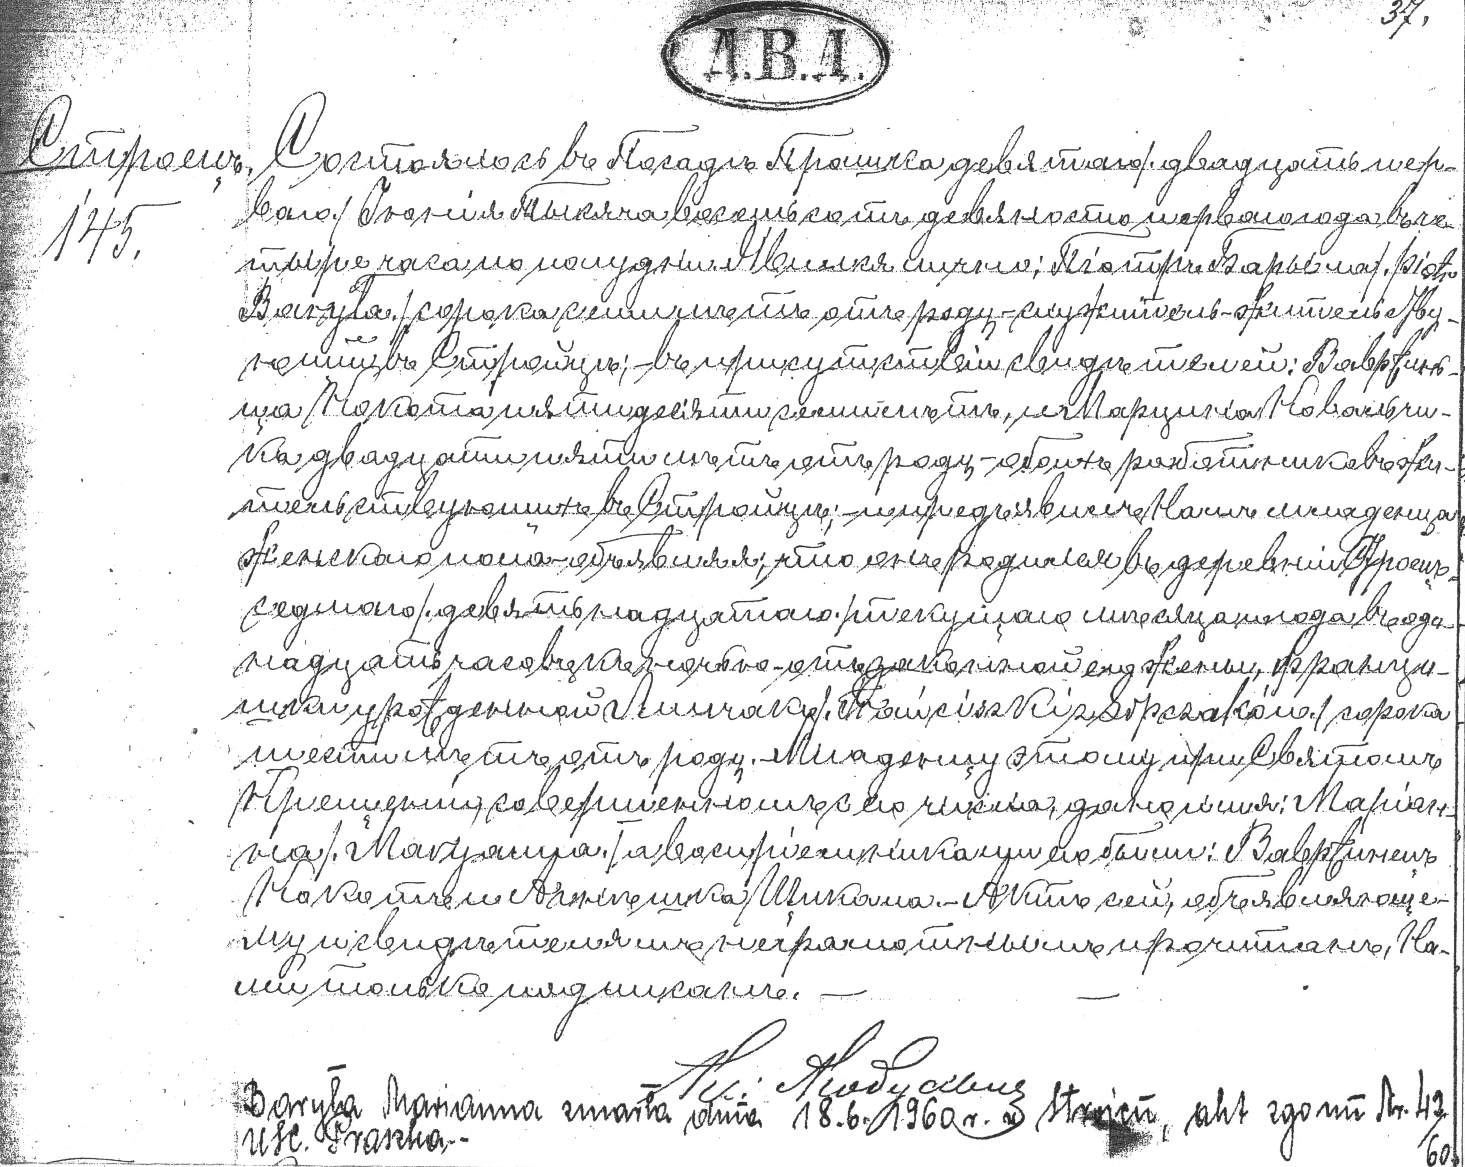 37.
А.В.А.
Строецъ.
145.
Состоялось въ Посадѣ Прашка девятаго /. двадцать пер-
ваго./ Іюнія тысяча восемьсотъ девяносто перваго года въ че-
тыре часа по полудни. Явился лично: Піотръ Барыла /. Piotr
Baryła./ сорока семи лѣтъ отъ роду – служитель – житель ству-
ющій въ Стройцѣ; – въ присутствіи свидѣтелей: Вавржинь-
ца Кокота пятидесяти семи лѣтъ, и Марцина Ковальчи-
ка двадцати пяти лѣтъ отъ роду – обоихъ работниковъ жи-
тельствующихъ въ Стройцѣ; – и предъявилъ Намъ младенца
женскаго пола – объявляя, что онъ родился въ деревни Строецъ
седмаго /. девятьнадцатаго./ текущаго мѣсяца и года въ оди-
надцать часовъ къ ночью – отъ законной его жены, Францы-
шки урожденной /. Franciszki z / сорока
шести лѣтъ отъ роду. – Младенцу этому при Святомъ
Крещеніи, совершенномъ сего числа, дано имя: Маріан-
на /. Maryanna./ а воспріемниками его были: Вавржинецъ
Кокотъ и Агнѣшка – Актъ сей, объявляюще-
му и свидѣтелямъ неграмотнымъ прочитанъ, На-
ми только подписанъ. –
Baryła Marianna zmarła dnia 18.6.1960 r. w Strojcu, akt zgonu Nr. 43/
USC. Praszka. – 60.